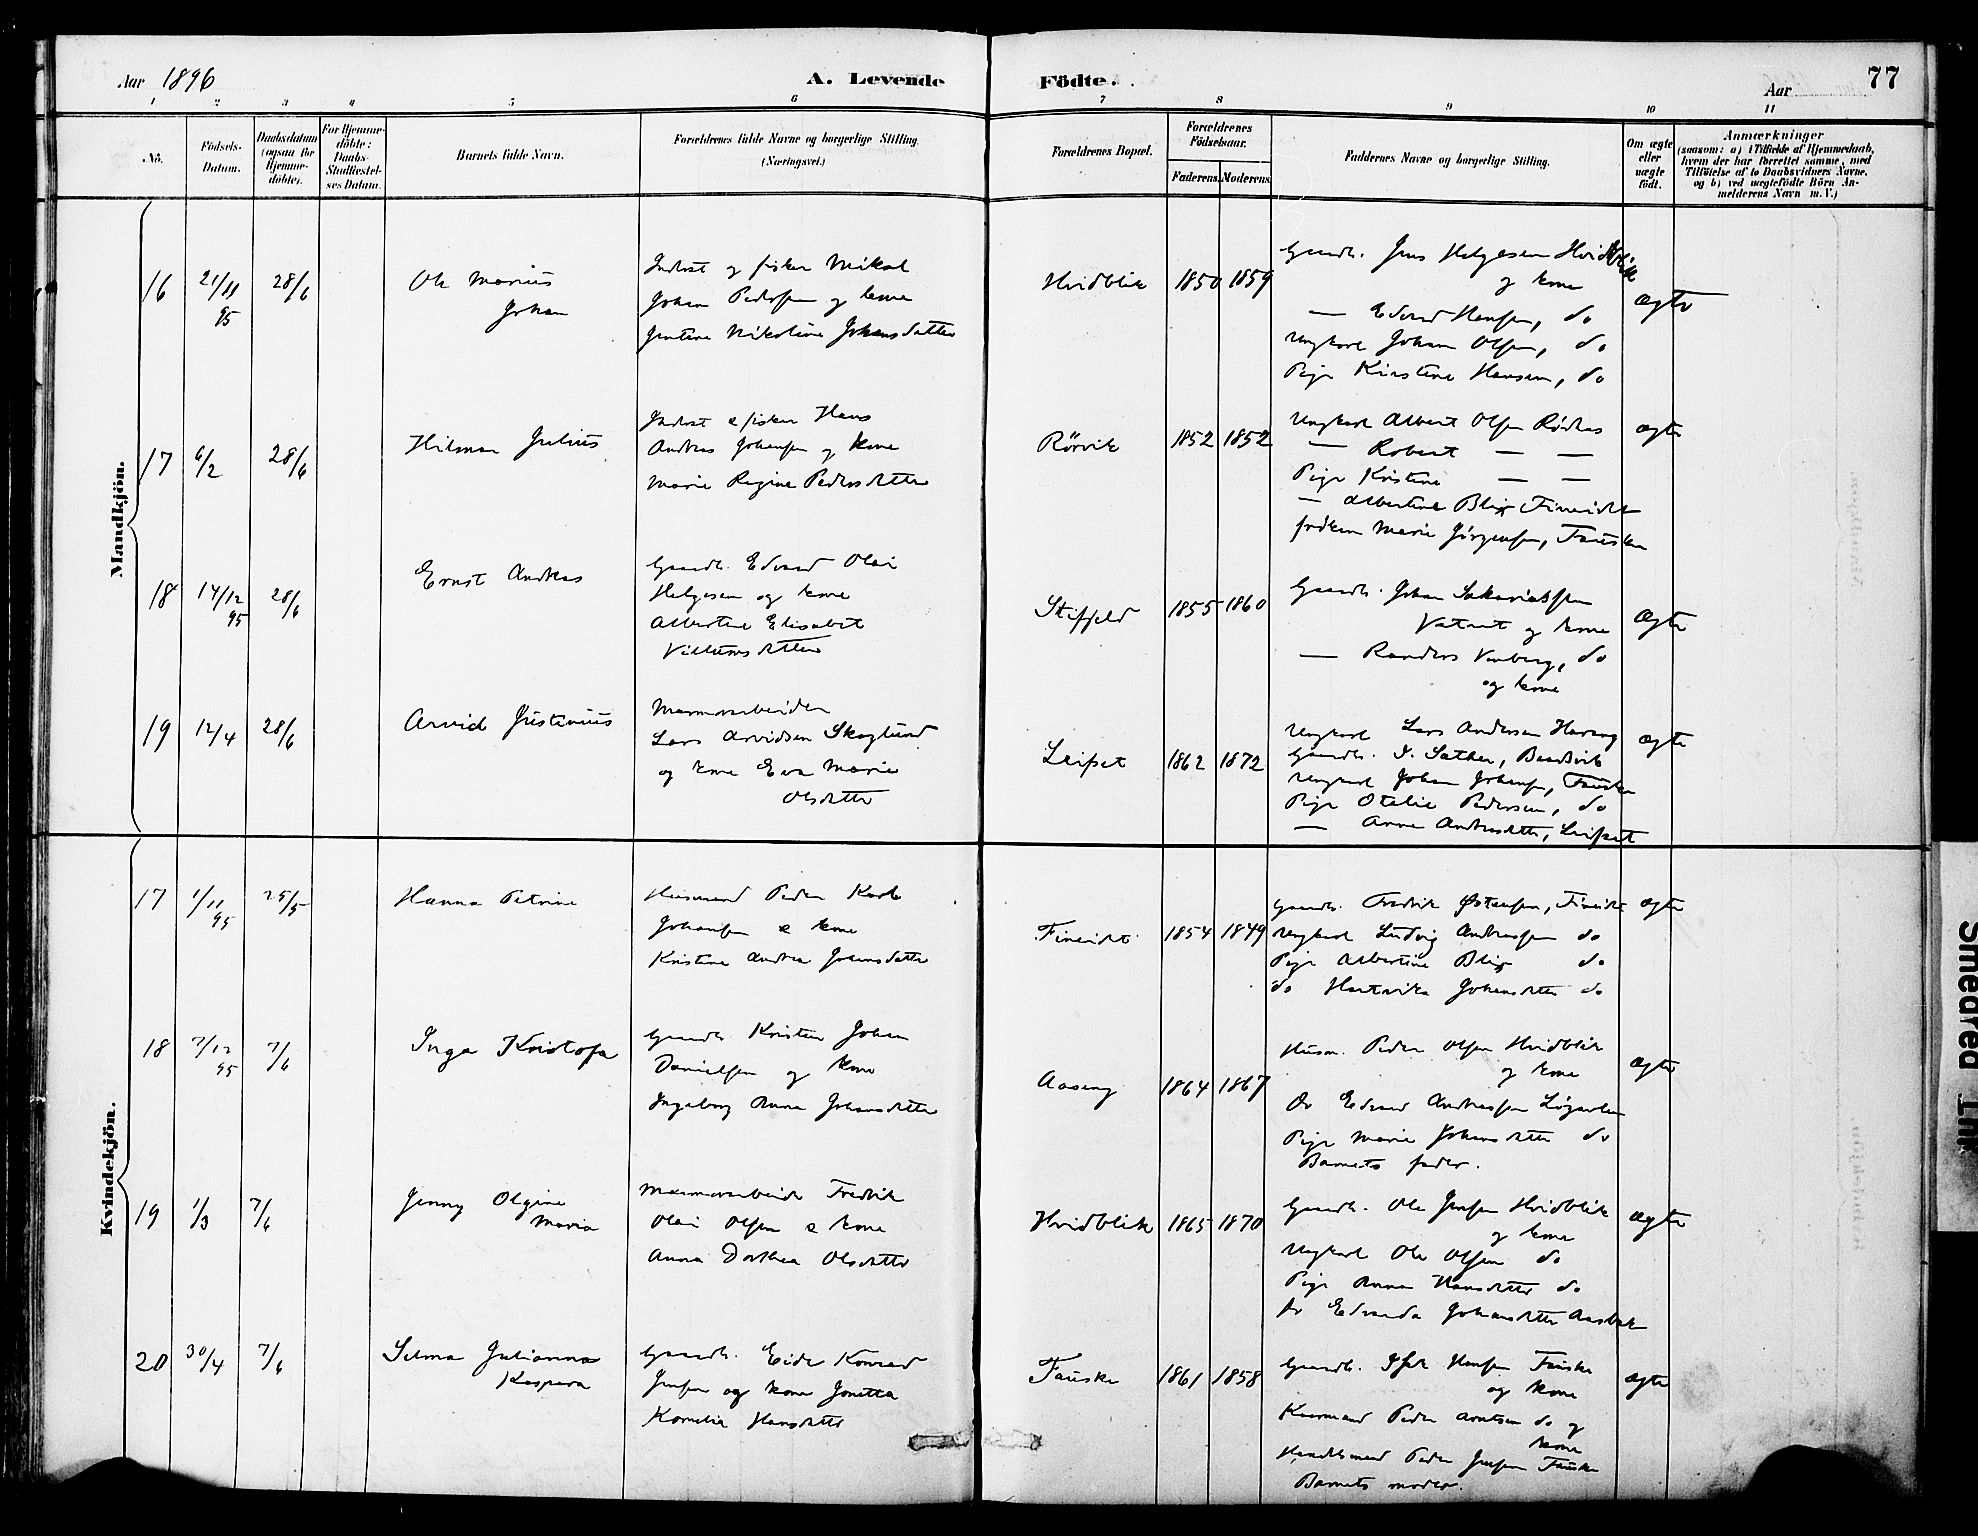 Aar 1896
A. Levende
Födte.
Aar
77
1 2 3 4 5 6 7 8 9 10 11
Nö.
Födsels-
Datum.
Daabsdatum
(ogsaa for
Hjemme-
döbte).
For Hjemme-
döbte:
Daabs-
Stadfæstel-
ses Datum.
Barnets fulde Navn.
Forældrenes fulde Navne og borgerlige Stilling.
(Næringsvei.)
Forældrenes Bopæl.
Forældrenes
Födselsaar.
Faderens.
Moderens.
Faddernes Navne og borgerlige Stilling.
Om ægte
eller
uægte
födt.
Anmærkninger
(saasom: a) i Tilfælde af Hjemmedaab,
hvem der har forrettet samme, med
Tilföielse af to Daabsvidners Navne,
og b) ved uægtefödte Börn An-
melderens Navn m. V.)
Mandkjön.
16
21/11
95
28/6
Ole Marius
Johan
Inderst og fisker Nikol
Johan Pedersen og kone
Jentine Nikoline Johansdatter
Hvidblik
1850
1859
Gaardb. Jens Helgesen Hvidblik
og kone
— Edvard Hansen, do
Ungkarl Johan Olsen, do
Pige Kirstine Hansen, do
ægte
17
6/2
28/6
Hilmar Julius
Inderst & fisker Hans
Andreas Johansen og kone
Marie Regine Pedersdatter
Rørvik
1852
1852
Ungkarl Albert Olsen Røsnes
— Robert — —
Pige Kristine — —
— Albertine Blix Fineidet
frøken Marie Jørgensen, Fauske
ægte
18
14/12
95
28/6
Ernst Andreas
Gaardb. Edvard Olai
Helgesen og kone
Albertine Elisabet
Villumsdatter
Stifjeld
1855
1860
Gaardb. Johan Sakariassen
Vatnet og kone
— Randers Venberg, do
og kone
ægte
19
12/4
28/6
Arvid Justinus
Marmorarbeider
Lars Arvidsen Skoglund
og kone Eva Marie
Olsdatter
Leifset
1862
1872
Ungkarl Lars Andersen
Gaardb. I. Sæther,
Ungkarl Johan Johansen, Fauske
Pige Otelie Pedersen, do
— Anne Andreasdatter, Leifset
ægte
Kvindekjön.
17
1/11
95
25/5
Hanna Petrine
Husmand Peder Karl
Johansen & kone
Kristine Andrea Johansdatter
Fineidet
1854
1849
Gaardb. Fredrik Østensen, Fineidet
Ungkarl Ludvig Andreassen do
Pige Albertine Blix do
do Hartvika Johansdatter do
ægte
18
7/12
95
7/6
Inga Kristofa
Gaardb. Kristen Johan
Danielsen og kone
Ingeborg Anna Johansdatter
Aaseng
1864
1867
Husm. Peder Olsen Hvidblik
og kone
do Edvard Andreassen Løgavlen
Pige Marie Johansdatter do
Barnets fader.
ægte
19
1/3
7/6
Jenny Olgine
Maria
Marmorarbeider Fredrik
Olai Olsen & kone
Anna Dorthea Olsdatter
Hvidblik
1865
1870
Gaardb. Ole Jensen Hvidblik
og kone
Ungkarl Ole Olsen do
Pige Anna Hansdatter do
do Edvarda Johansdatter Aasbak
ægte
20
30/4
7/6
Selma Julianna
Kaspara
Gaardb. Eide Konrad
Jensen og kone Jonetta
Kornelia Hansdatter
Fauske
1861
1858
Gaardb. Isak Hansen Fauske
og kone
Kaarmand Peder Arntsen do og
kone
Handelsmand Peder Jensen Fauske
Barnets moder.
ægte
Smedfed Ink